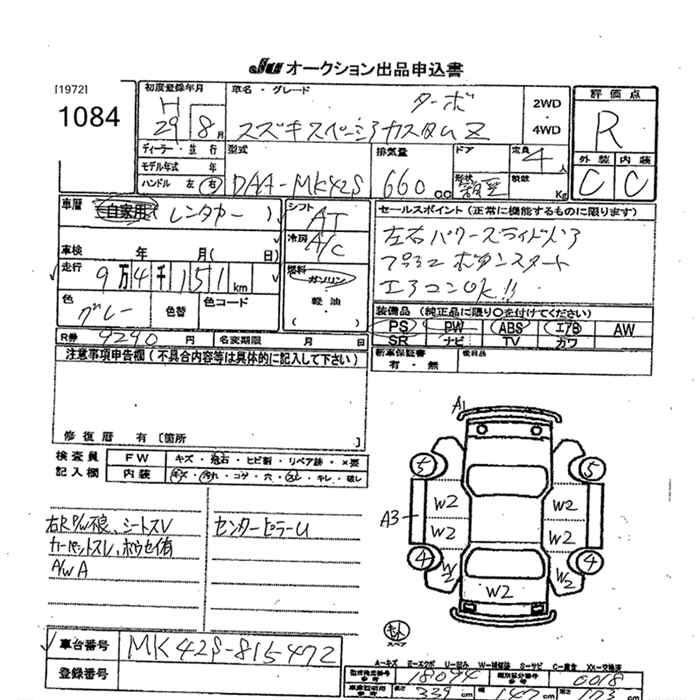 JU オークション出品申込書
[1972]
1084
初度登録年月
H
29 8月
車名・グレード
ターボ
スズキスペーシアカスタムZ
2WD
・
4WD
評価点
R
外装 内装
C C
ディーラー・並行
モデル年式 年
ハンドル 左・右
型式
DAA-MK42S
排気量
660 cc
ドア
形状
定員
4人
積数
Kg
車歴
自家用・レンタカー )
車検 年 月( 日)
走行
9万4千151km
色
グレー
色替
色コード
シフト
AT
冷房
A/C
燃料
ガソリン
軽油
( )
セールスポイント(正常に機能するものに限ります)
左右パワースライドドア
プッシュボタンスタート
エアコンOK!!
装備品(純正品に限り○を付けてください)
PS PW ABS エアB AW
SR ナビ TV カワ
R券 9290円 名変期限 月 日
新車保証書
有・無
後日品
注意事項申告欄(不具合内容等は具体的に記入して下さい)
修復歴 有 〔箇所 〕
検査員
記入欄
FW キズ・飛石・ヒビ割・リペア跡・×要
内装 キズ・汚れ・コゲ・穴・スレ・キレ・破レ
右R P/W不良、シートスレ
カーペットスレ、ホウセイ有
A/W A
センターピラーU
A1
5 5
A3
W2 W2
W2 W2
4 4
W2 W2
W2
スペア
A-キズ E-エクボ U-凹み W-補修跡 S-サビ C-腐食 XX-交換済
車台番号
MK42S-815472
登録番号
型式指定番号
18094
類別区分番号
0018
長さ 339cm 147cm 173cm